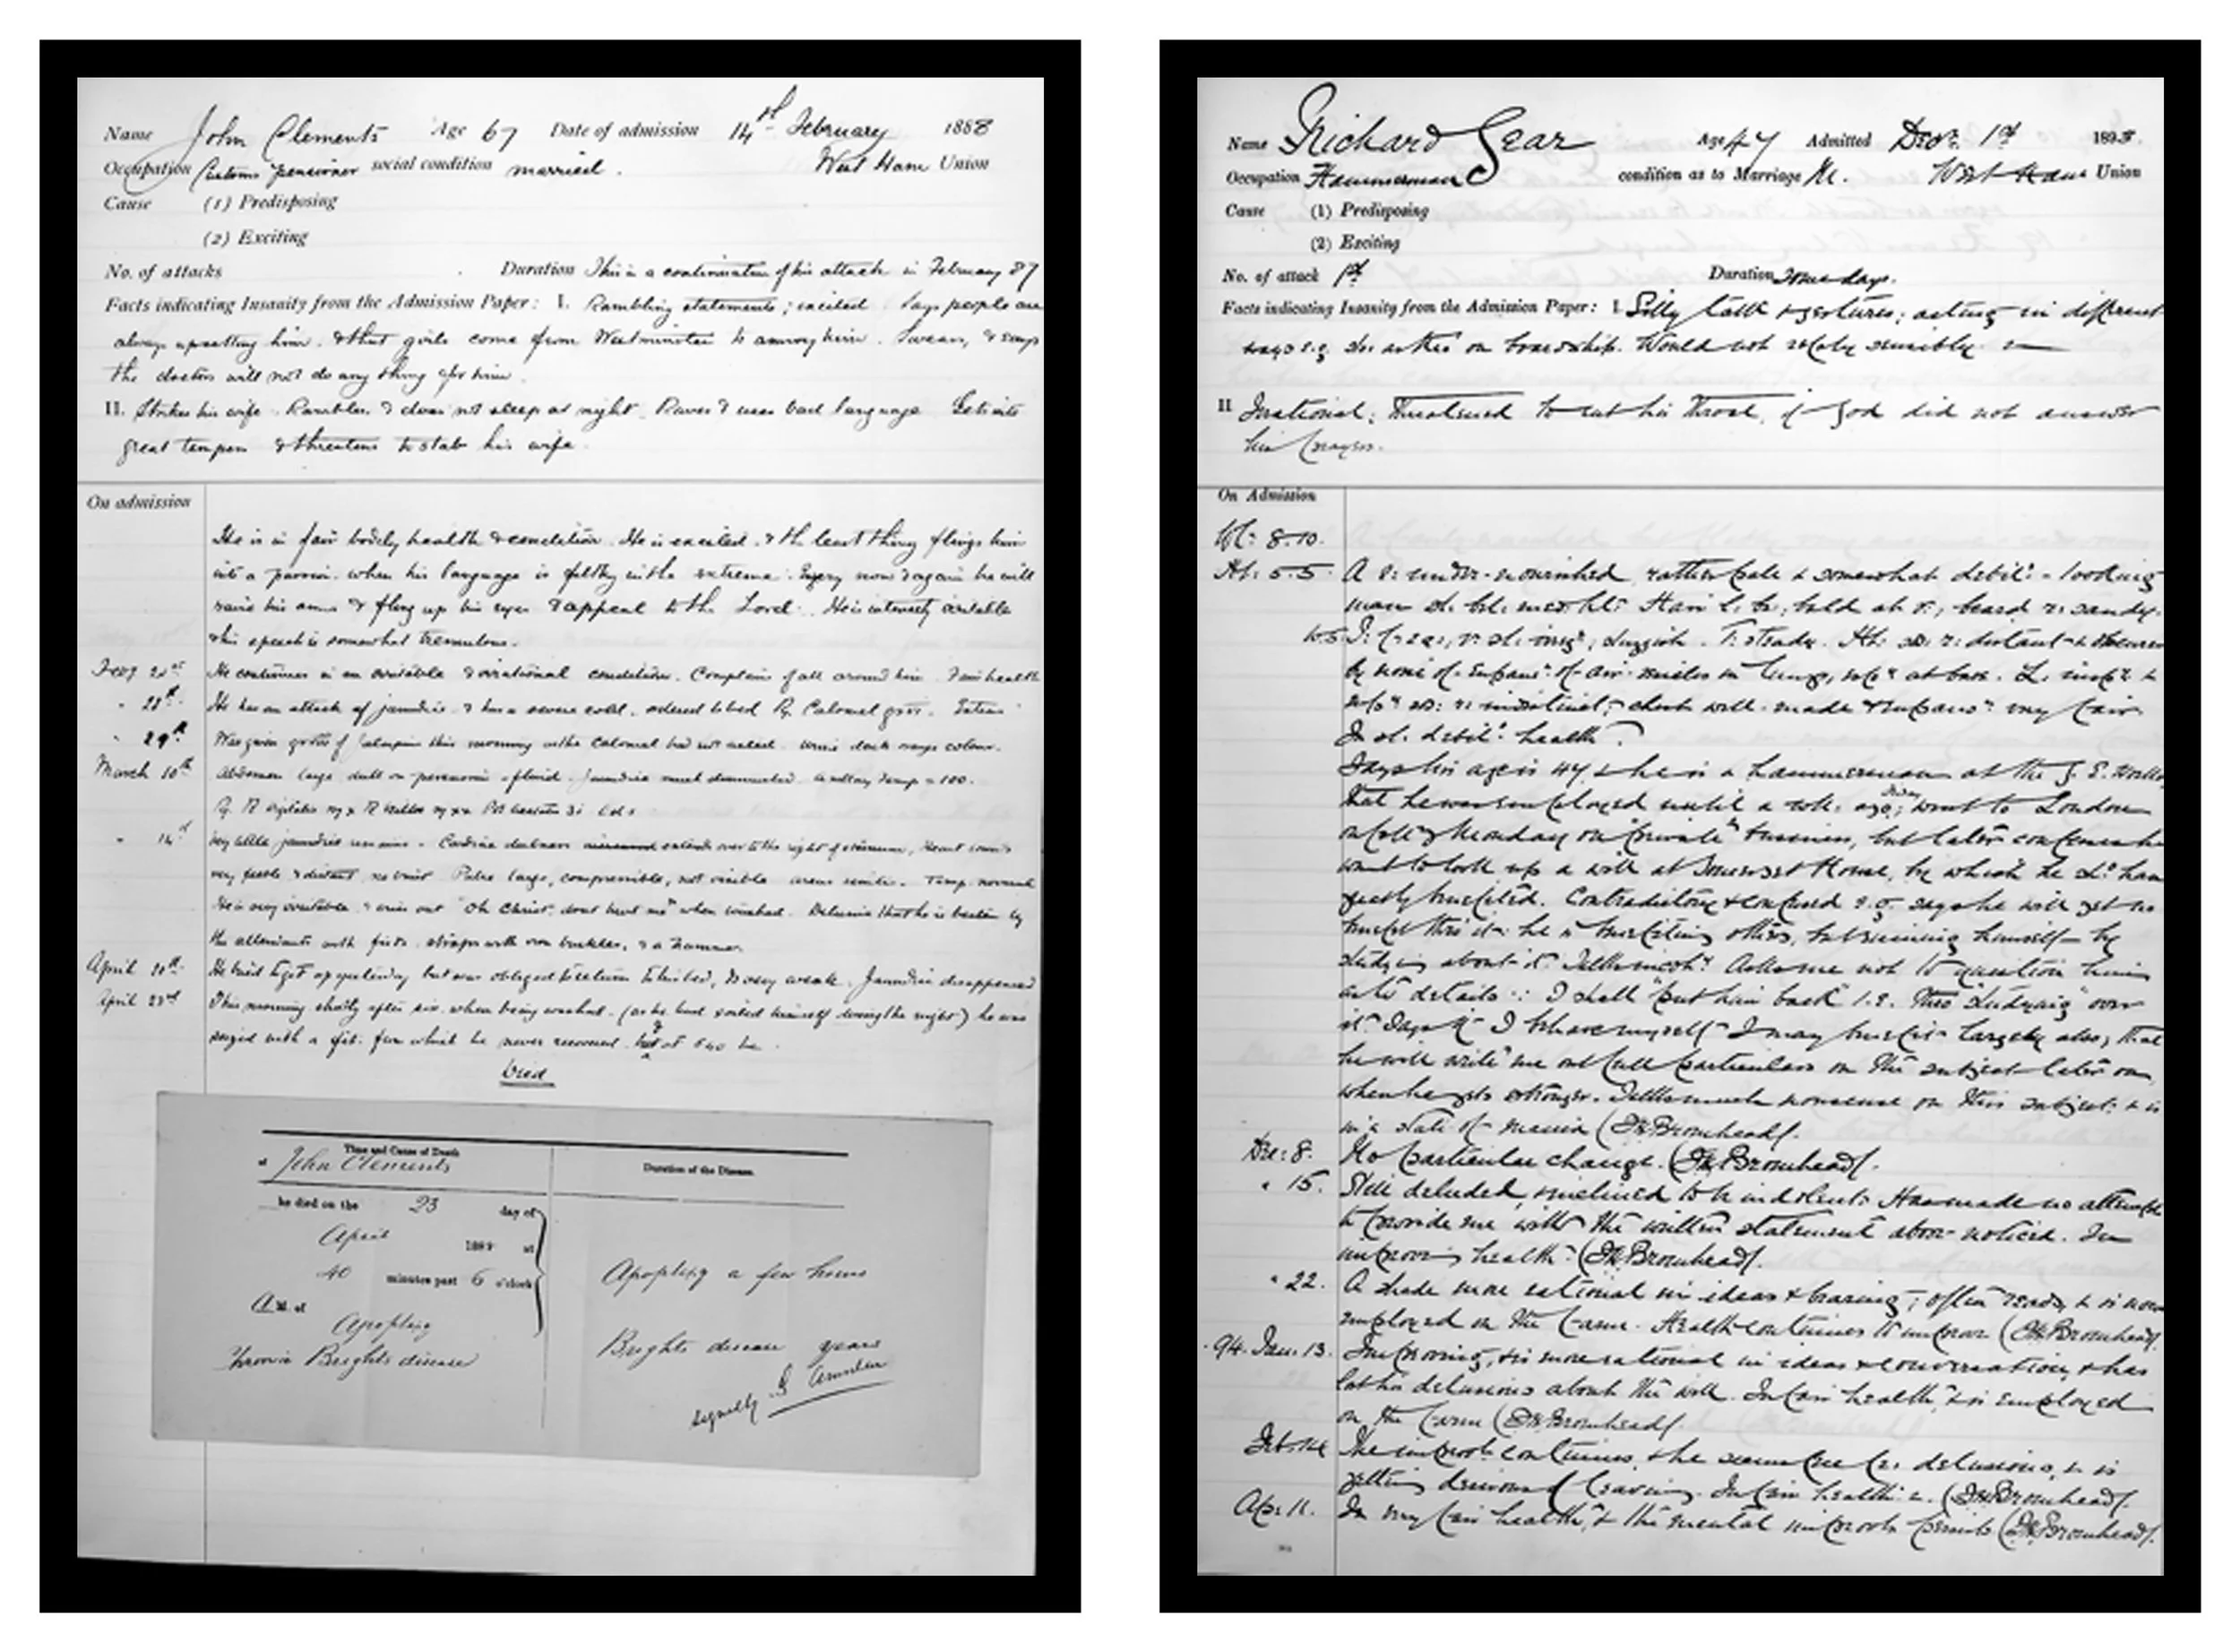 Name John Clements Age 67 Date of admission 14th February 1888
Occupation Customs pensioner social condition married. West Ham Union
Cause (1) Predisposing
(2) Exciting
No. of attacks Duration This is a continuation of his attack in February 87
Facts indicating Insanity from the Admission Paper: I. Rambling statements; excited. Says people are
always upsetting him. & that girls come from Westminster to annoy him. Swears, & says
the doctors will not do any thing for him.
II. Strikes his wife. Rambles & does not sleep at night. Raves & uses bad language Gets into
great tempers & threatens to stab his wife.
On admission
He is in fair bodily health & condition. He is excited. & the least thing flings him
into a passion. when his language is filthy in the extreme. Every now & again he will
raise his arms & fling up his eyes & appeal to the Lord. He is intensely irritable
& his speech is somewhat tremulous.
He continues in an irritable & irrational condition. Complains of all around him. Fair health
" 28th. He has an attack of jaundice & has a severe cold. ordered to bed Calomel
" 29th Was given this morning as the Calomel had not acted. Urine dark orange colour.
March 10th Abdomen large dull on percussion & fluid. Jaundice much diminished axillary Temp = 100.
" 14th Very little jaundice remains. Cardiac dulness extends over to the right of sternum, Heart sounds
very feeble & distant no bruit Pulse large, compressible, not visible Temp normal
He is very irritable & cries out "Oh Christ, dont hurt me" when washed. Delusion that he is beaten by
the attendants with fists straps with iron buckles, & a hammer.
April He tried to get up yesterday but was obliged to return to his bed, is very weak. Jaundice disappeared
April 23rd This morning shortly after six when being washed. (as he had soiled himself during the night) he was
seized with a fit. from which he never recovered. but at 6 40 he
Died
Time and Cause of Death
of John Clements
Duration of the Disease.
he died on the 23 day of
April 188 at
40 minutes past 6 o'clock
A.M. of
Apoplexy
Chronic Brights disease
Apoplexy a few hours
Brights disease years
signed
Name Richard Gear Age 47 Admitted Decr. 1st 1893.
Occupation Hammerman condition as to Marriage M. West Ham Union
Cause (1) Predisposing
(2) Exciting
No. of attack 1st Duration Some days.
Facts indicating Insanity from the Admission Paper: I. Silly talk & gestures; acting in different
ways e.g. as tho on board ship. Would not reply sensibly
II Irrational; threatened to cut his throat, if God did not answer
his prayers.
On Admission
Wt: 8.10.
Ht: 5.5 A under-nourished, rather pale & somewhat debil: - looking
man
In sl. debil: health.
Says his age is 47, & he is a hammerman at the G. E. Works,
that he was employed until a wk: ago; went to London
on Monday on "private" business, but later confesses he
went to look up a will at Somerset House, by which he have
greatly benefited. Contradictory & confused e.g. says he will get no
benefit thro it: he is benefiting others, but ruining himself by
studying about it. Asks me not to question him
as to details I shall "put him back" i.e. thro "studying" over
it. Says if I behave myself I may benefit largely also, that
he will write me out full particulars on the subject later on,
when he gets stronger. Talks much nonsense on this subject & is
in a state of mania (Bromhead).
Dec: 8. No particular change. (Bromhead).
" 15. Still deluded, & inclined to be indolent. Has made no attempt
to provide me with the written statement above noticed. In
improving health. (Bromhead).
" 22. A shade more rational in ideas & bearing; often reads, & is now
employed on the farm. Health continues to improve (Bromhead).
94. Jan. 13. Improving, & is more rational in ideas & conversation, & has
lost his delusions about the will. In fair health, & is employed
on the farm (Bromhead).
Feb. 14 The improvt. continues, & he seems free fr. delusions, & is
getting desirous of leaving. In fair health (Bromhead).
Ap: 11. In very fair health, & the mental improvt. persists (Bromhead).